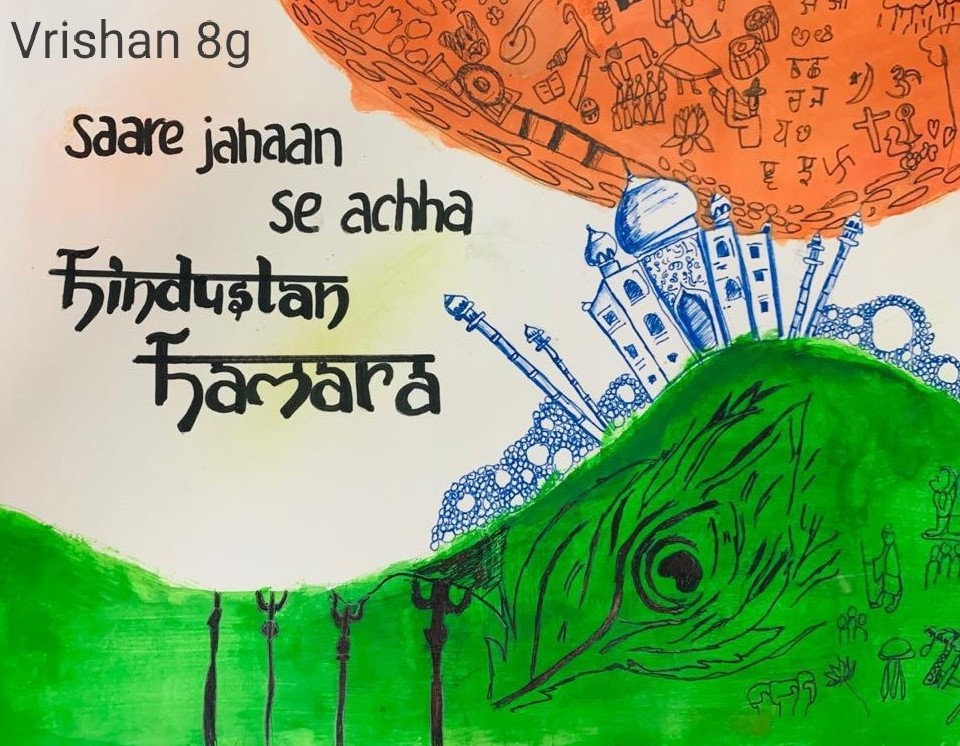 Vrishan 8g
saare jahaan
se achha
hindustan
hamara